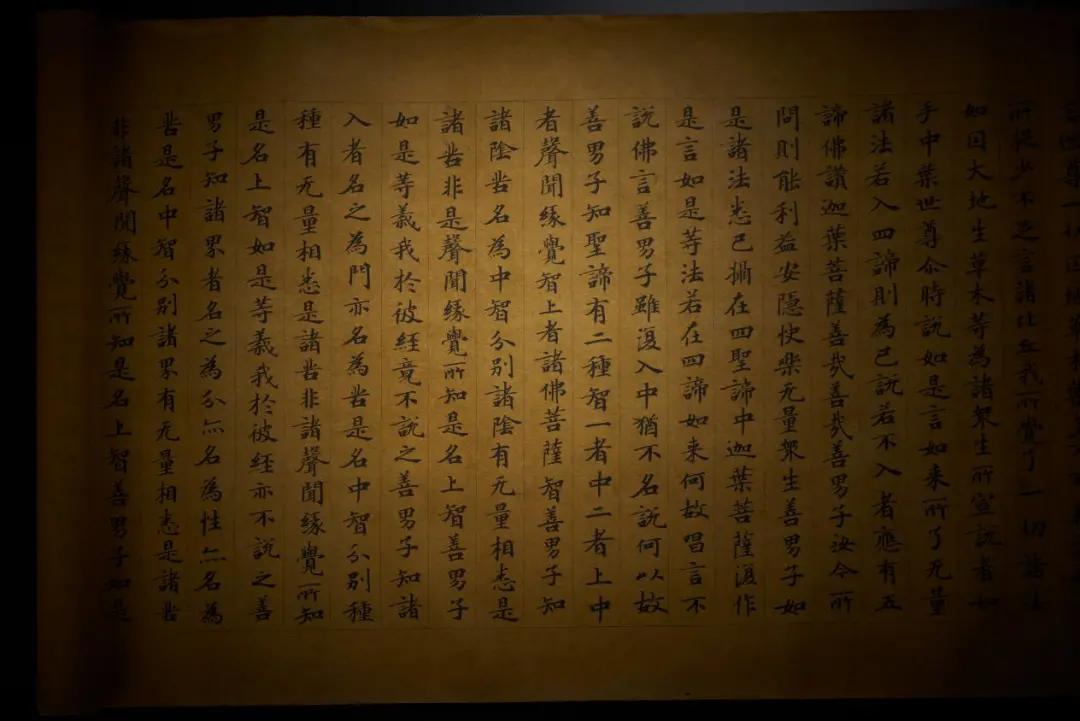 所捉少不足言諸比丘我所覺了一切諸法
如因大地生草木等為諸眾生所宣說者如
手中葉世尊尒時說如是言如来所了无量
諸法若入四諦則為已說若不入者應有五
諦佛讚迦葉菩薩善哉善哉善男子汝今所
問則能利益安隱快樂无量眾生善男子如
是諸法悉已攝在四聖諦中迦葉菩薩復作
是言如是等法若在四諦如来何故唱言不
說佛言善男子雖復入中猶不名說何以故
善男子知聖諦有二種智一者中二者上中
者聲聞緣覺智上者諸佛菩薩智善男子知
諸陰苦名為中智分別諸陰有无量相悉是
諸苦非是聲聞緣覺所知是名上智善男子
如是等義我於彼経竟不說之善男子知諸
入者名之為門亦名為苦是名中智分別種
種有无量相悉是諸苦非諸聲聞緣覺所知
是名上智如是等義我於彼経亦不說之善
男子知諸界者名之為分亦名為性亦名為
苦是名中智分別諸界有无量相悉是諸苦
非諸聲聞緣覺所知是名上智善男子如是